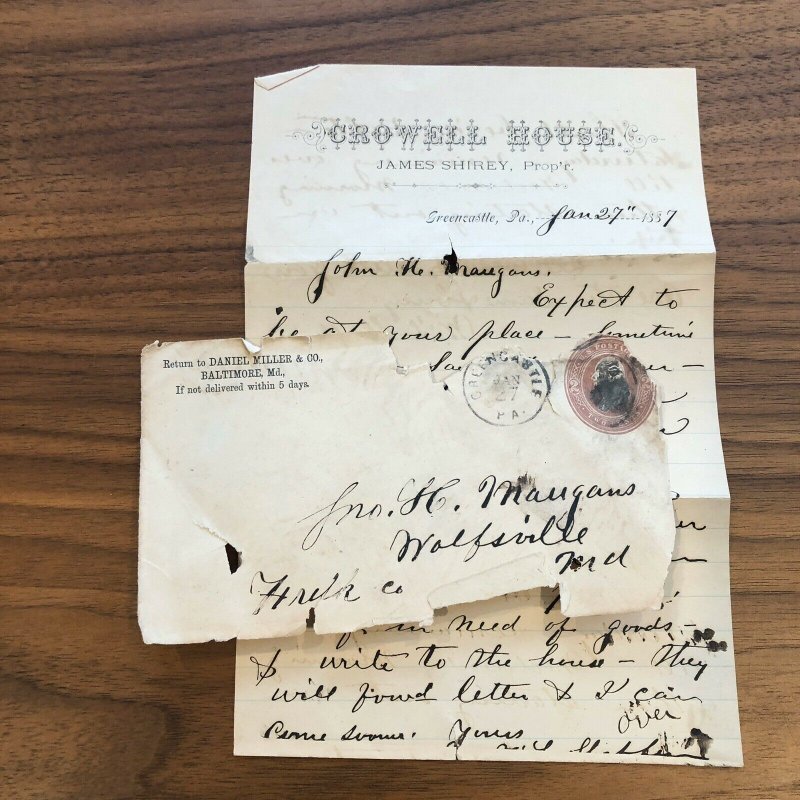 CROWELL HOUSE.
JAMES SHIREY, Prop'r.
Greencastle, Pa., Jan 27" 1887
John H. Maugans.
Expect to
be at your place – sometime
Return to DANIEL MILLER & CO.,
BALTIMORE, Md.,
If not delivered within 5 days.
GREENCASTLE
JAN
27
PA.
Jno. H. Maugans
Wolfsville
Md
Fredk co
in need of goods –
& write to the house – they
will forwd letter & I can
come sooner. Yours
over